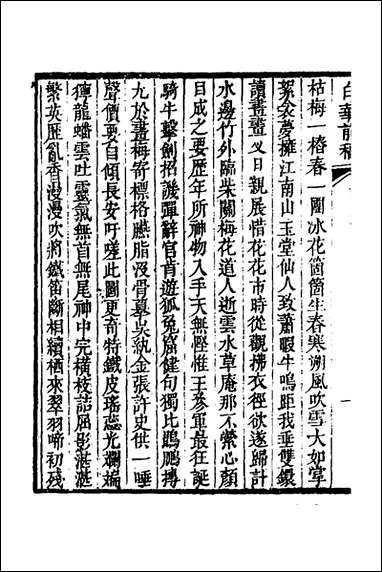 白華前稿
枯梅一樁春一團冰花箇箇生春寒朔風吹雪大如掌
絮衾夢擁江南山玉堂仙人致蕭暇牛鳴距我垂雙鐶
讀書畫又日親展惜花花市時從觀拂衣徑欲遂歸計
水邊竹外臨柴關梅花道人逝雲水草庵那不縈心顏
日成之要歷年所神物入手天無慳惟王參軍最狂誕
騎牛擊劍招譏彈辭官肯遊狐兔窟健句獨比鵾鵬摶
九於畫梅寄標格臙脂沒骨摹吳紈金張許史供一唾
聲價要自傾長安吁嗟此圖更奇特鐵皮瑤蕊光斕斒
獰龍蟠雲吐靈氣無首無尾神中完橫枝詰屈影湛湛
繁英歷亂香漫漫吹將鐵笛斷相續栖來翠羽啼初殘